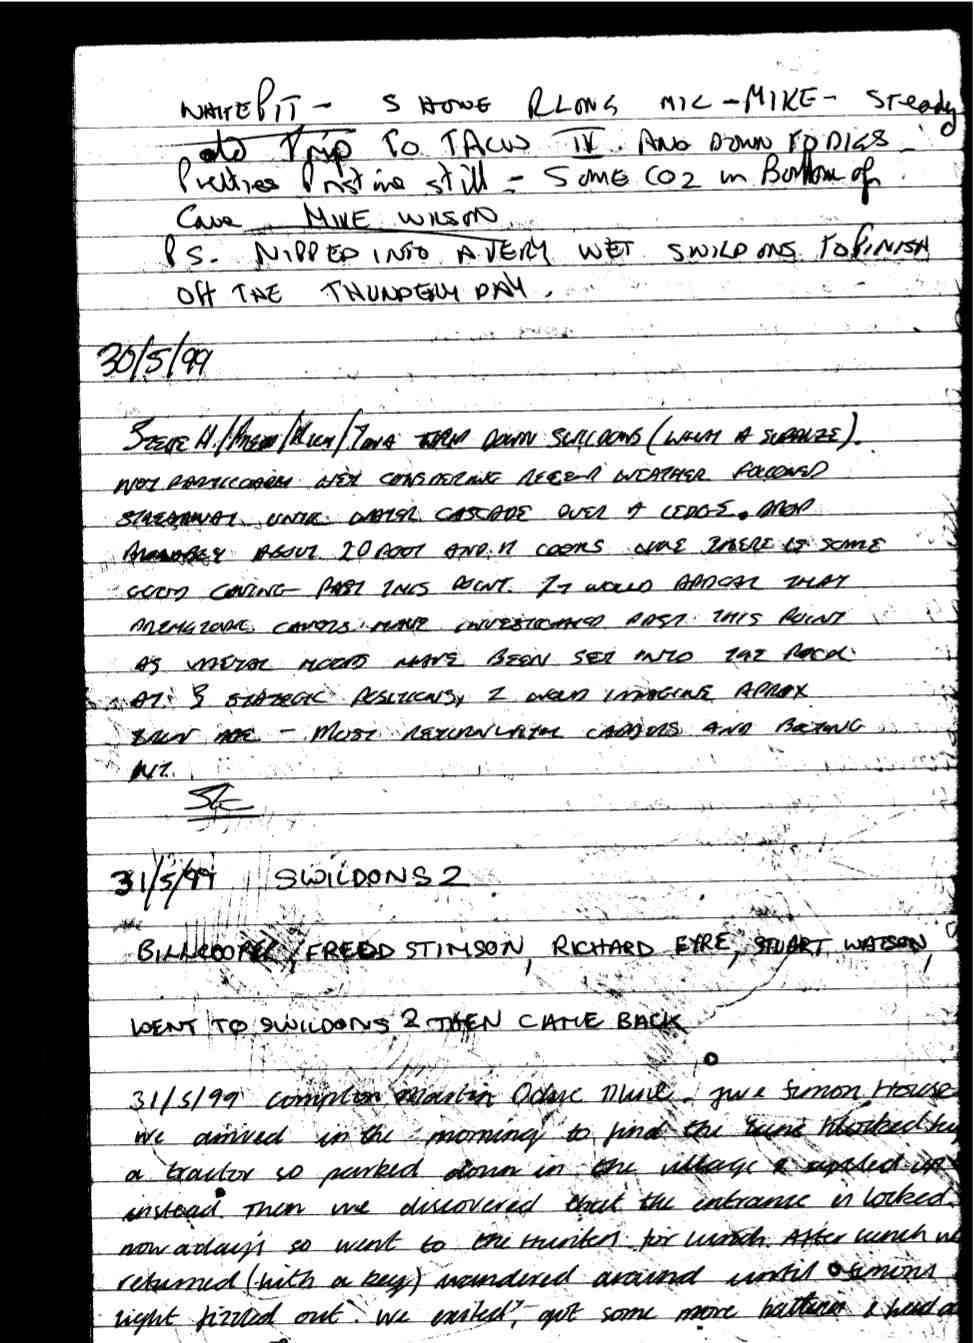 WHITE PIT - S HOWE R LONG MIC - MIKE - Steady
old Trip TO TACUS IV. AND DOWN TO DIGS -
Pretties Pristine still - SOME CO2 in Bottom of
Cave MIKE WILSON
PS. NIPPED INTO A VERY WET SWILDONS TO FINISH
Off THE THUNDERY DAY.
30/5/99
STEVE H./ / / TURN DOWN SWILDONS (WHAT A SUPRIZE).
NOT PARTICULARLY WET CONSIDERING RECENT WEATHER FOLLOWED
STREAMWAY UNTIL WATER CASCADE OVER A LEDGE. DROP
ABOUT 20 FOOT AND IT LOOKS LIKE THERE IS SOME
GOOD CAVING PAST THIS POINT. IT WOULD APPEAR THAT
CAVERS HAVE INVESTIGATED PAST THIS POINT
AS METAL HOOKS HAVE BEEN SET INTO THE ROCK
AT STRATEGIC POSITIONS, I WOULD IMAGINE APROX
AGE - MUST RETURN WITH LADDERS AND
Ste
31/5/99 SWILDONS 2
BILL COOPER, FREDD STIMSON, RICHARD EYRE, STUART WATSON,
WENT TO SWILDONS 2 THEN CAME BACK
31/5/99 Compton Martin Ochre Mine. Simon Howe
We arrived in the morning to find the lane blocked by
a tractor so parked down in the village & up
instead. Then we discovered that the entrance is locked
nowadays so went to the Hunters for lunch. After lunch we
returned (with a key) wandered around until Simons
light fizzled out. We exited, got some more batteries & head